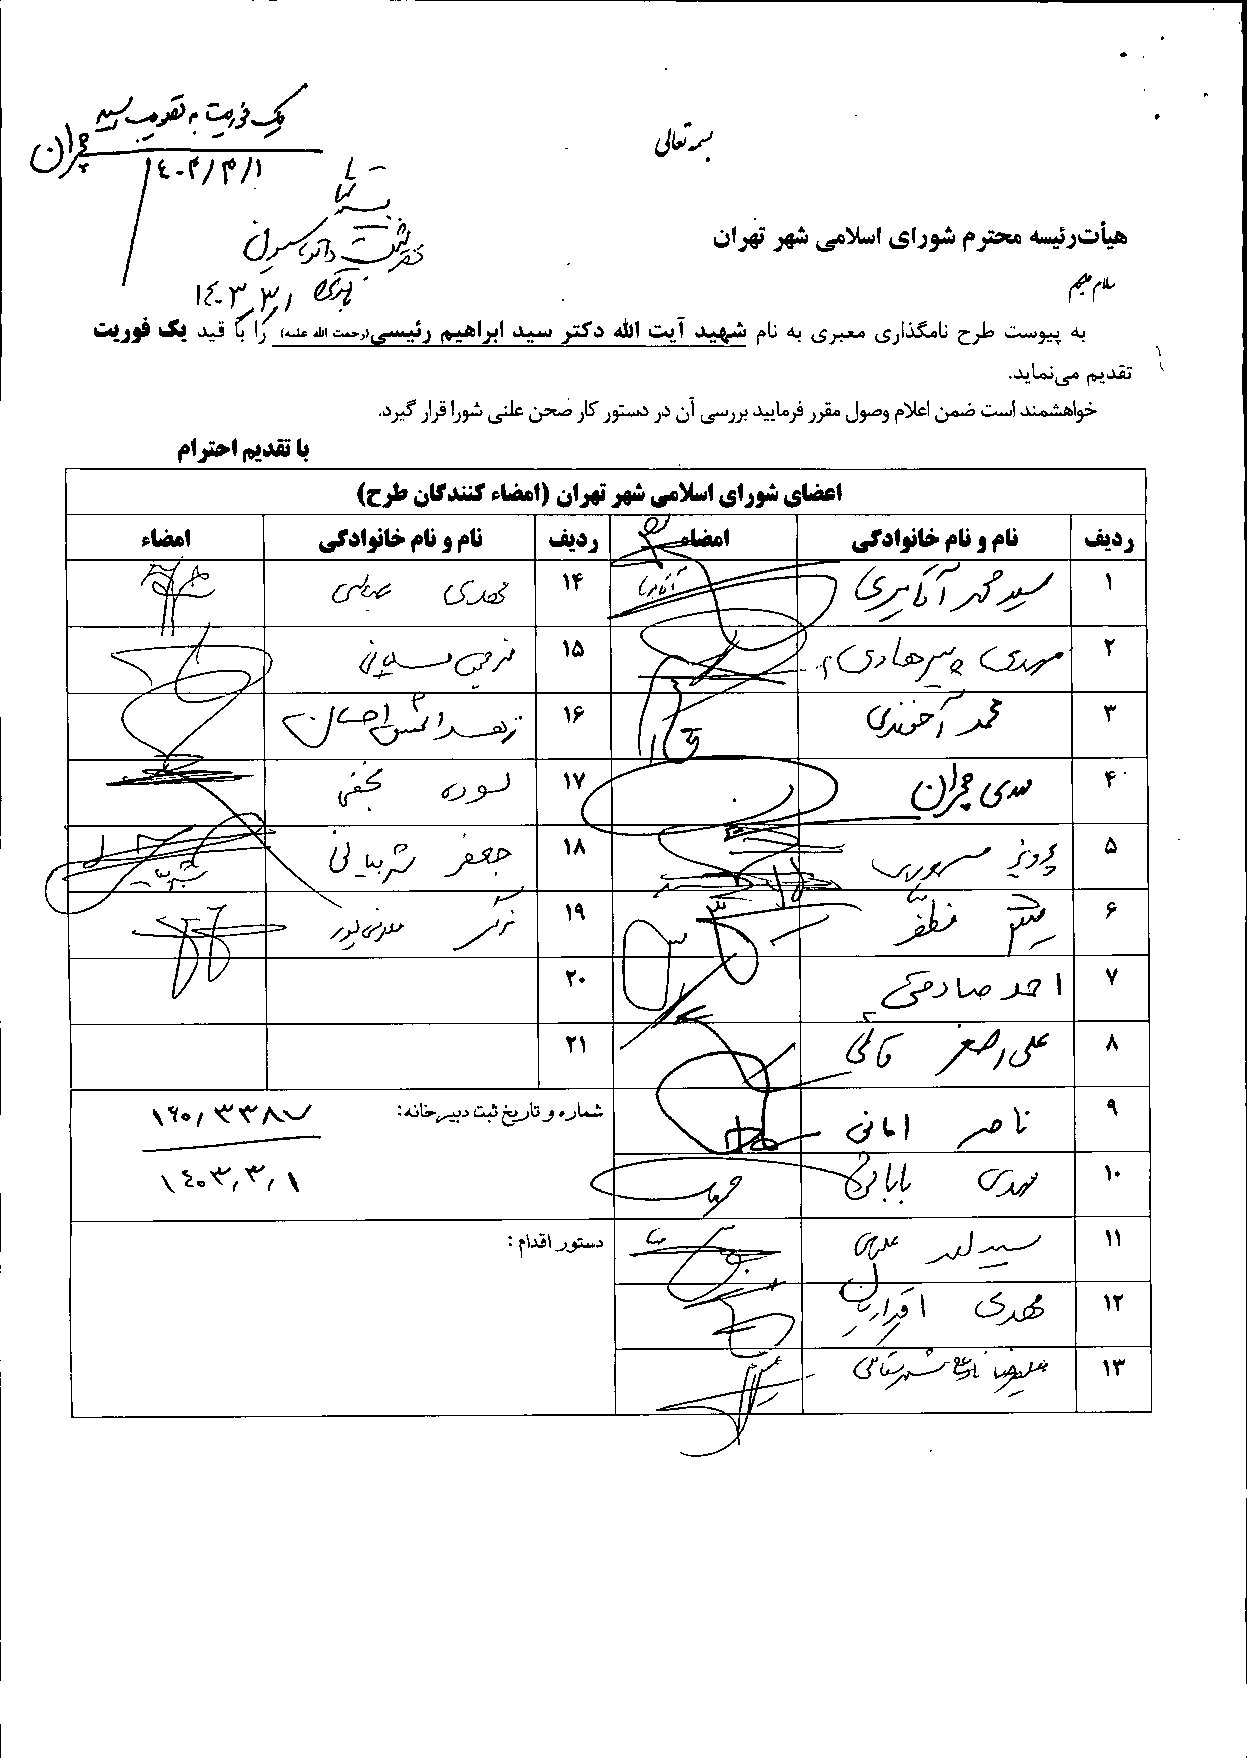 بسمه تعالی
یک فوریت به تصویب رسید
چمران
۱۴۰۳/۳/۱
هیأت‌رئیسه محترم شورای اسلامی شهر تهران
سلام علیکم
۱۴۰۳/۳/۱
به پیوست طرح نامگذاری معبری به نام شهید آیت الله دکتر سید ابراهیم رئیسی(رحمت الله علیه) را با قید یک فوریت
تقدیم می‌نماید.
خواهشمند است ضمن اعلام وصول مقرر فرمایید بررسی آن در دستور کار صحن علنی شورا قرار گیرد.
با تقدیم احترام
اعضای شورای اسلامی شهر تهران (امضاء کنندگان طرح)
ردیف نام و نام خانوادگی امضاء ردیف نام و نام خانوادگی امضاء
۱ سید محمد آقامیری ۱۴ مهدی عباسی
۲ مهدی پیرهادی ۱۵ نرجس سلیمانی
۳ محمد آخوندی ۱۶ زهرا شمس احسان
۴ مهدی چمران ۱۷ سوده نجفی
۵ پرویز سروری ۱۸ جعفر شربیانی
۶ میثم مظفر ۱۹ نرگس معدنی پور
۷ احمد صادقی ۲۰
۸ علی اصغر قائمی ۲۱
۹ ناصر امانی شماره و تاریخ ثبت دبیرخانه: ۱۶۰/۳۳۸۷
۱۰ مهدی بابائی ۱۴۰۳/۳/۱
۱۱ سید احمد علوی دستور اقدام :
۱۲ مهدی اقراریان
۱۳ علیرضا نادعلی